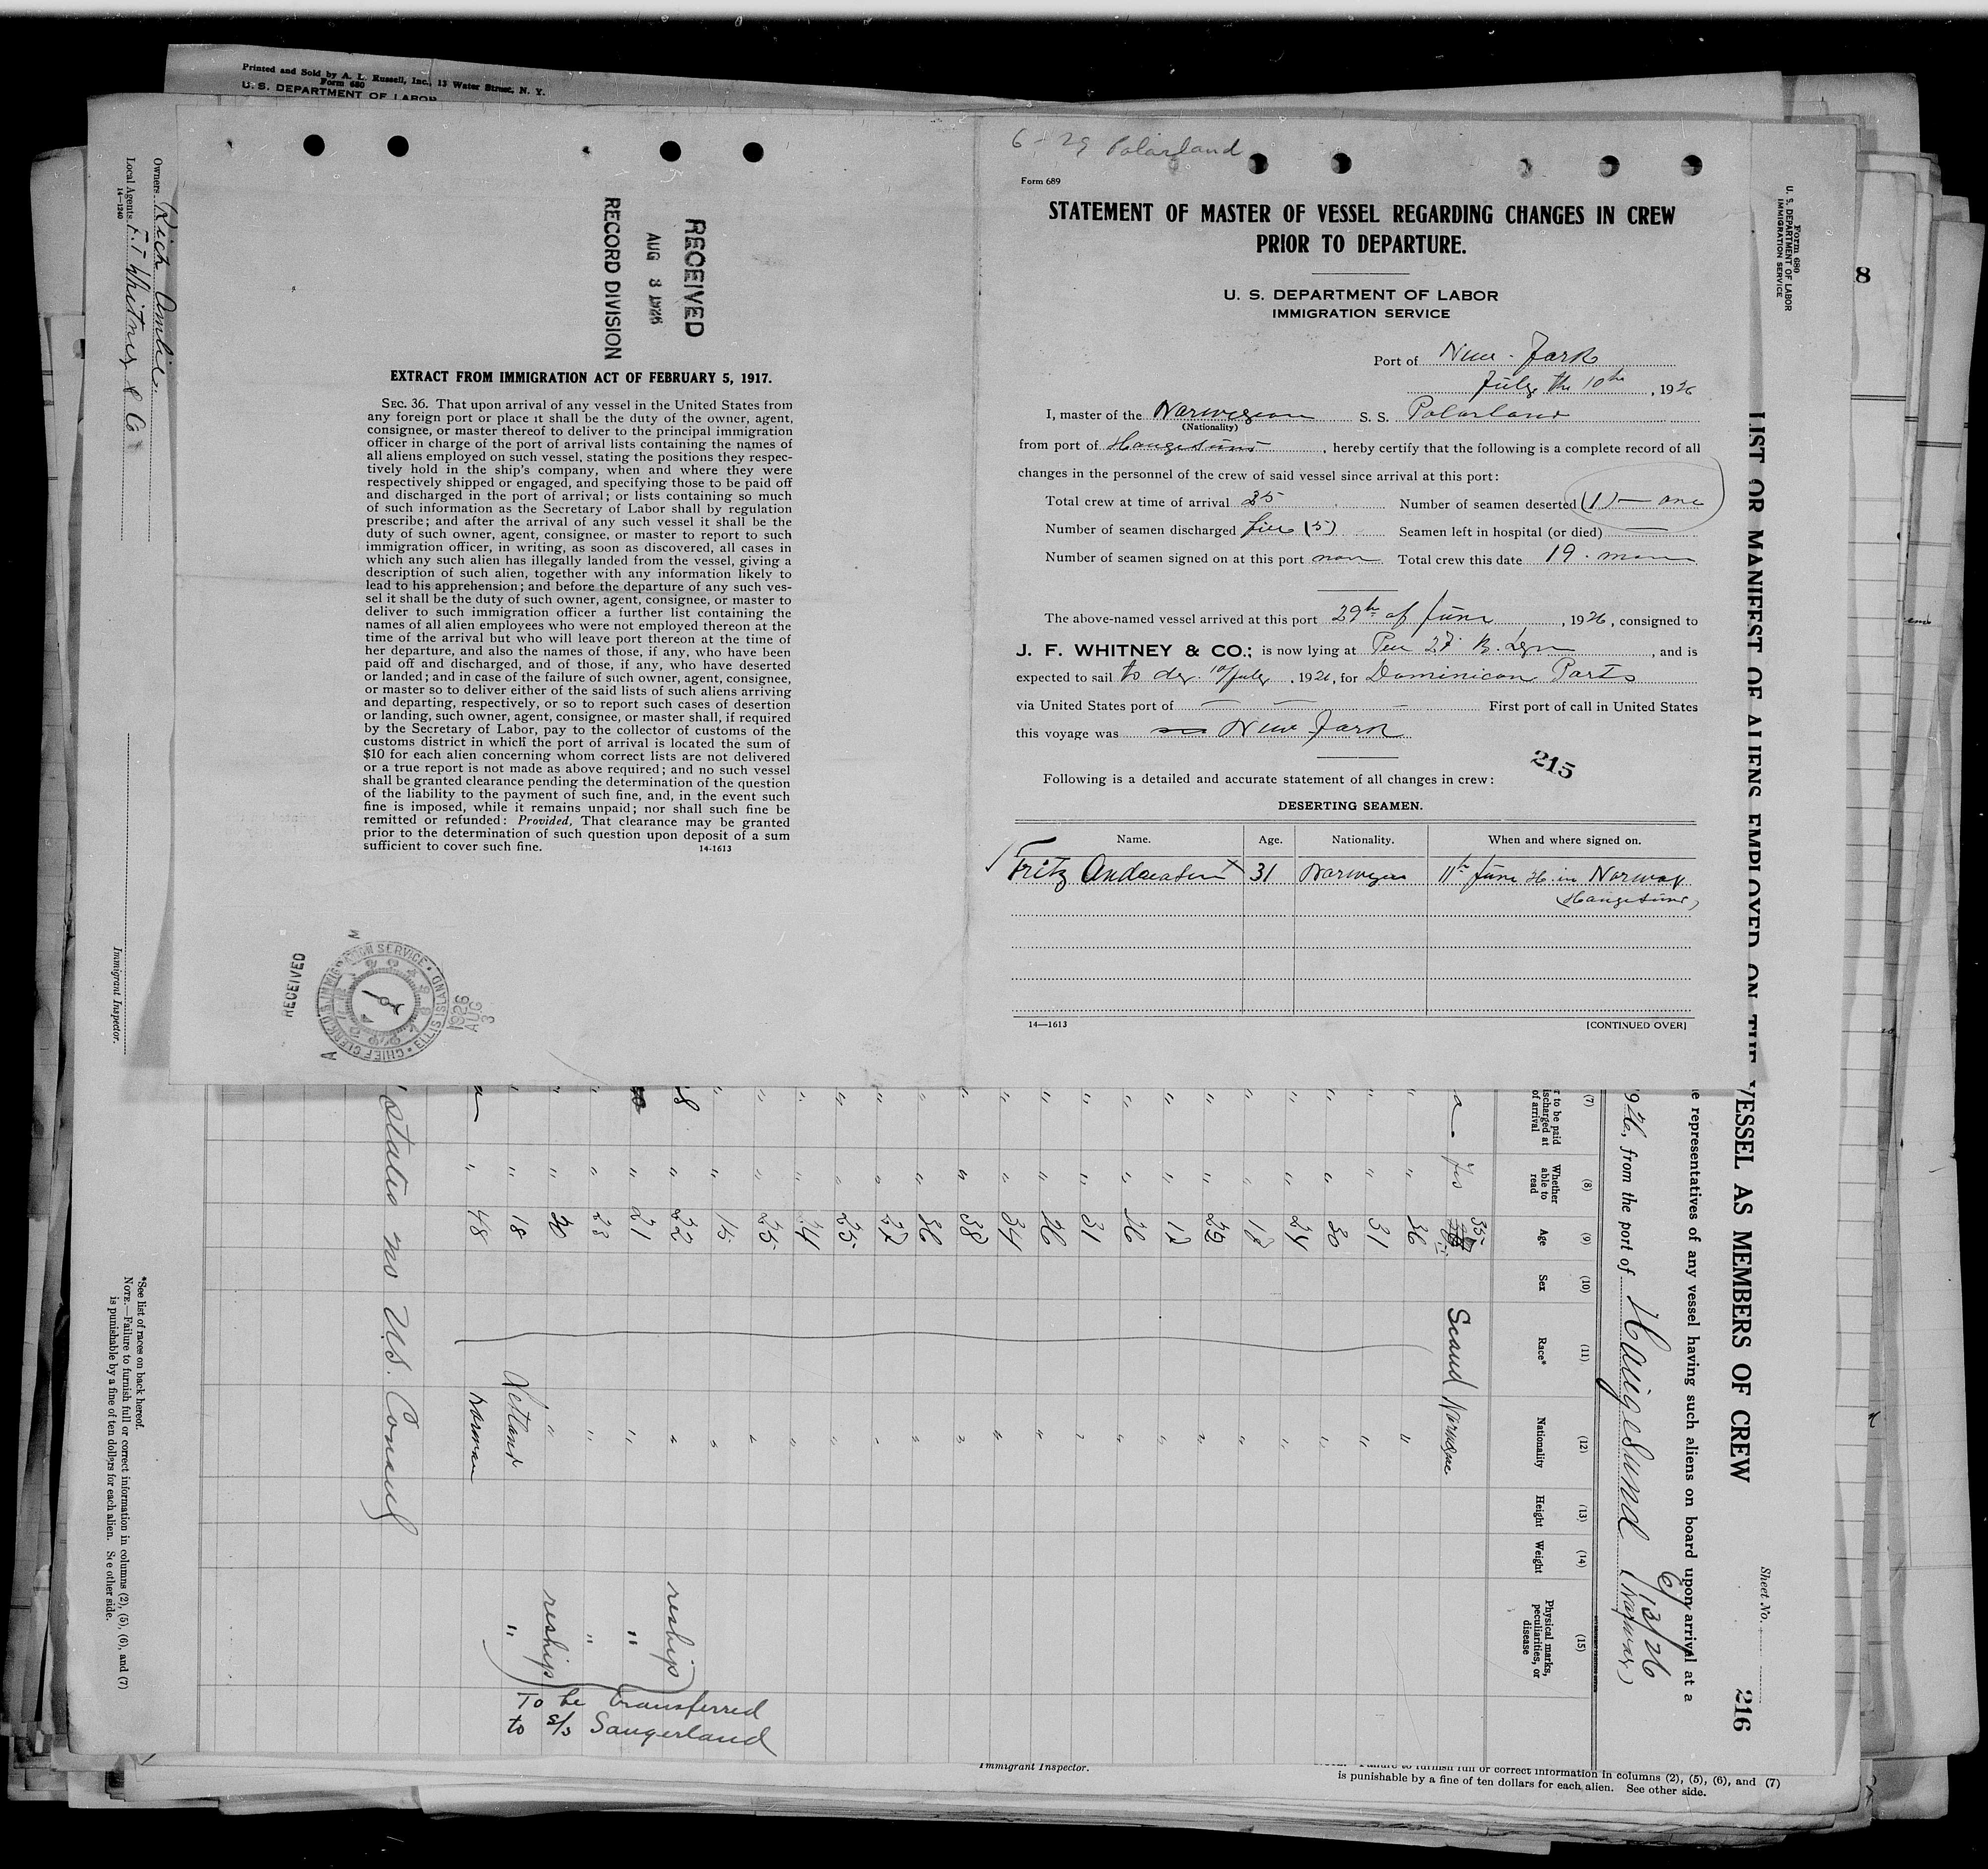 Printed and Sold by A. L. Russell, Inc., 13 Water Street, N. Y.
Form 680
U. S. DEPARTMENT OF LABOR
Owners
Local Agents Whitney & Co
14-1240
Immigrant Inspector.
RECEIVED
AUG 3 1926
RECORD DIVISION
EXTRACT FROM IMMIGRATION ACT OF FEBRUARY 5, 1917.
SEC. 36. That upon arrival of any vessel in the United States from
any foreign port or place it shall be the duty of the owner, agent,
consignee, or master thereof to deliver to the principal immigration
officer in charge of the port of arrival lists containing the names of
all aliens employed on such vessel, stating the positions they respec-
tively hold in the ship's company, when and where they were
respectively shipped or engaged, and specifying those to be paid off
and discharged in the port of arrival; or lists containing so much
of such information as the Secretary of Labor shall by regulation
prescribe; and after the arrival of any such vessel it shall be the
duty of such owner, agent, consignee, or master to report to such
immigration officer, in writing, as soon as discovered, all cases in
which any such alien has illegally landed from the vessel, giving a
description of such alien, together with any information likely to
lead to his apprehension; and before the departure of any such ves-
sel it shall be the duty of such owner, agent, consignee, or master to
deliver to such immigration officer a further list containing the
names of all alien employees who were not employed thereon at the
time of the arrival but who will leave port thereon at the time of
her departure, and also the names of those, if any, who have been
paid off and discharged, and of those, if any, who have deserted
or landed; and in case of the failure of such owner, agent, consignee,
or master so to deliver either of the said lists of such aliens arriving
and departing, respectively, or so to report such cases of desertion
or landing, such owner, agent, consignee, or master shall, if required
by the Secretary of Labor, pay to the collector of customs of the
customs district in which the port of arrival is located the sum of
$10 for each alien concerning whom correct lists are not delivered
or a true report is not made as above required; and no such vessel
shall be granted clearance pending the determination of the question
of the liability to the payment of such fine, and, in the event such
fine is imposed, while it remains unpaid; nor shall such fine be
remitted or refunded: Provided, That clearance may be granted
prior to the determination of such question upon deposit of a sum
sufficient to cover such fine.
14-1613
RECEIVED
CHIEF CLERK U.S. IMMIGRATION SERVICE · ELLIS ISLAND
1926
AUG
3
A
M
6-29 Polarland
Form 689
STATEMENT OF MASTER OF VESSEL REGARDING CHANGES IN CREW
PRIOR TO DEPARTURE.
U. S. DEPARTMENT OF LABOR
IMMIGRATION SERVICE
Port of New-Jark
July the 10th, 1926
I, master of the Norwegian S. S. Polarland
(Nationality)
from port of Haugesund, hereby certify that the following is a complete record of all
changes in the personnel of the crew of said vessel since arrival at this port:
Total crew at time of arrival 25 Number of seamen deserted (1) — one
Number of seamen discharged five (5) Seamen left in hospital (or died) —
Number of seamen signed on at this port non Total crew this date 19. men
The above-named vessel arrived at this port 29th of June, 1926, consigned to
J. F. WHITNEY & CO.; is now lying at 27 and is
expected to sail to day 10/July, 1926, for Dominican Ports
via United States port of — — — First port of call in United States
this voyage was New Jark
215
Following is a detailed and accurate statement of all changes in crew:
DESERTING SEAMEN.
Name. Age. Nationality. When and where signed on.
Fritz Andreasen X 31 Norwegian 11th June 26 in Norway
(Haugesund)
14—1613
[CONTINUED OVER]
8
Form 680
U. S. DEPARTMENT OF LABOR
IMMIGRATION SERVICE
LIST OR MANIFEST OF ALIENS EMPLOYED ON THE VESSEL AS MEMBERS OF CREW
Sheet No.
216
e representatives of any vessel having such aliens on board upon arrival at a
926, from the port of Haugesund (Norway)
6/13/26
(7) (8) (9) (10) (11) (12) (13) (14) (15)
r to be paid
ischarged at
of arrival
Whether
able to
read
Age
Sex
Race*
Nationality
Height
Weight
Physical marks,
peculiarities, or
disease
Yes 35 Scand Norwegne
" 36 "
" 31 "
" 30 "
" 24 "
" 17 "
" 29 "
" 17 "
" 26 "
" 31 "
" 26 "
" 34 "
" 38 "
" 36 "
" 27 "
" 25 "
" 24 "
" 25 "
" 15 "
" 22 " reship
" 21 " "
" 23 " "
" 20 " reship
" 18 Letland "
" 48 Norwen
To be transferred
to s/s Saugerland
States no U.S. Consul
*See list of races on back hereof.
NOTE.—Failure to furnish full or correct information in columns (2), (5), (6), and (7)
is punishable by a fine of ten dollars for each alien. See other side.
Immigrant Inspector.
Failure to furnish full or correct information in columns (2), (5), (6), and (7)
is punishable by a fine of ten dollars for each alien. See other side.